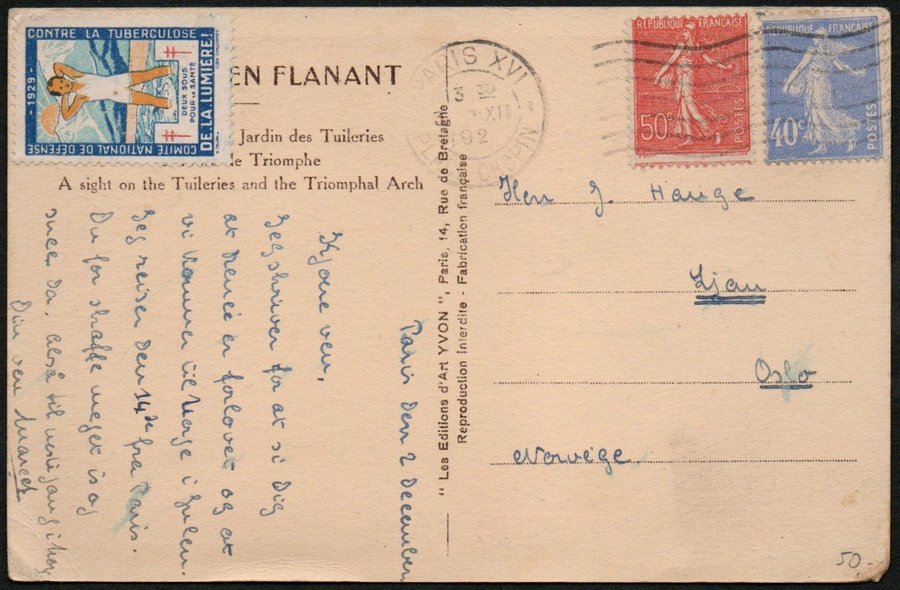 CONTRE LA TUBERCULOSE
DE LA LUMIÈRE!
DEUX SOUS
POUR LA SANTÉ
COMITÉ NATIONAL DE DÉFENSE
-1929-
EN FLANANT
Jardin des Tuileries
de Triomphe
A sight on the Tuileries and the Triomphal Arch
PARIS XVI
XII
192
RÉPUBLIQUE FRANÇAISE
50c
POSTES
RÉPUBLIQUE FRANÇAISE
40c
POSTES
" Les Editions d'Art YVON ", Paris, 14, Rue de Bretagne
Reproduction interdite - Fabrication française
Paris den 2 December
Kjære ven,
Jeg skriver for at si dig
at Renée er forlovet og at
vi kommer til Norge i julen.
Jeg reiser den 14de fra Paris.
Du for skaffe meget is og
snee da. Altså til
Din ven Marcel
Herr J. Hauge
Ljan
Oslo
Norvège
50.-